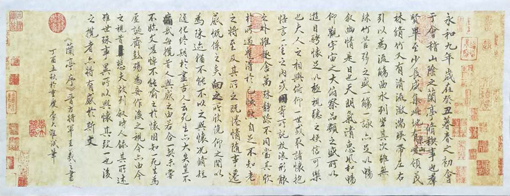 永和九年歲在癸丑暮春之初會
于會稽山陰之蘭亭脩禊事也羣
賢畢至少長咸集此地有崇山峻領茂
林脩竹又有清流激湍暎帶左右
引以為流觴曲水列坐其次雖無
絲竹管弦之盛一觴一詠亦足以暢
敘幽情是日也天朗氣清惠風和暢
仰觀宇宙之大俯察品類之盛所以
遊目騁懷足以極視聽之娛信可樂
也夫人之相與俯仰一世或取諸懷抱
悟言一室之內或因寄所託放浪形骸
之外雖趣舍萬殊靜躁不同當其欣
於所遇暫得於己怏然自足不知老
之將至及其所之既惓情隨事遷
感慨係之矣向之所欣俛仰之間以
為陳迹猶不能不以之興懷況脩短
隨化終期於盡古人云死生亦大矣豈
不痛哉每攬昔人興感之由若合一契未嘗
不臨文嗟悼不能喻之於懷固知一死生為
虛誕齊彭殤為妄作後之視今亦由今
之視昔悲夫故列敘時人錄其所述
雖世殊事異所以興懷其致一也後
之攬者亦將有感於斯文
蘭亭序 晉右將軍王羲之書
丁酉